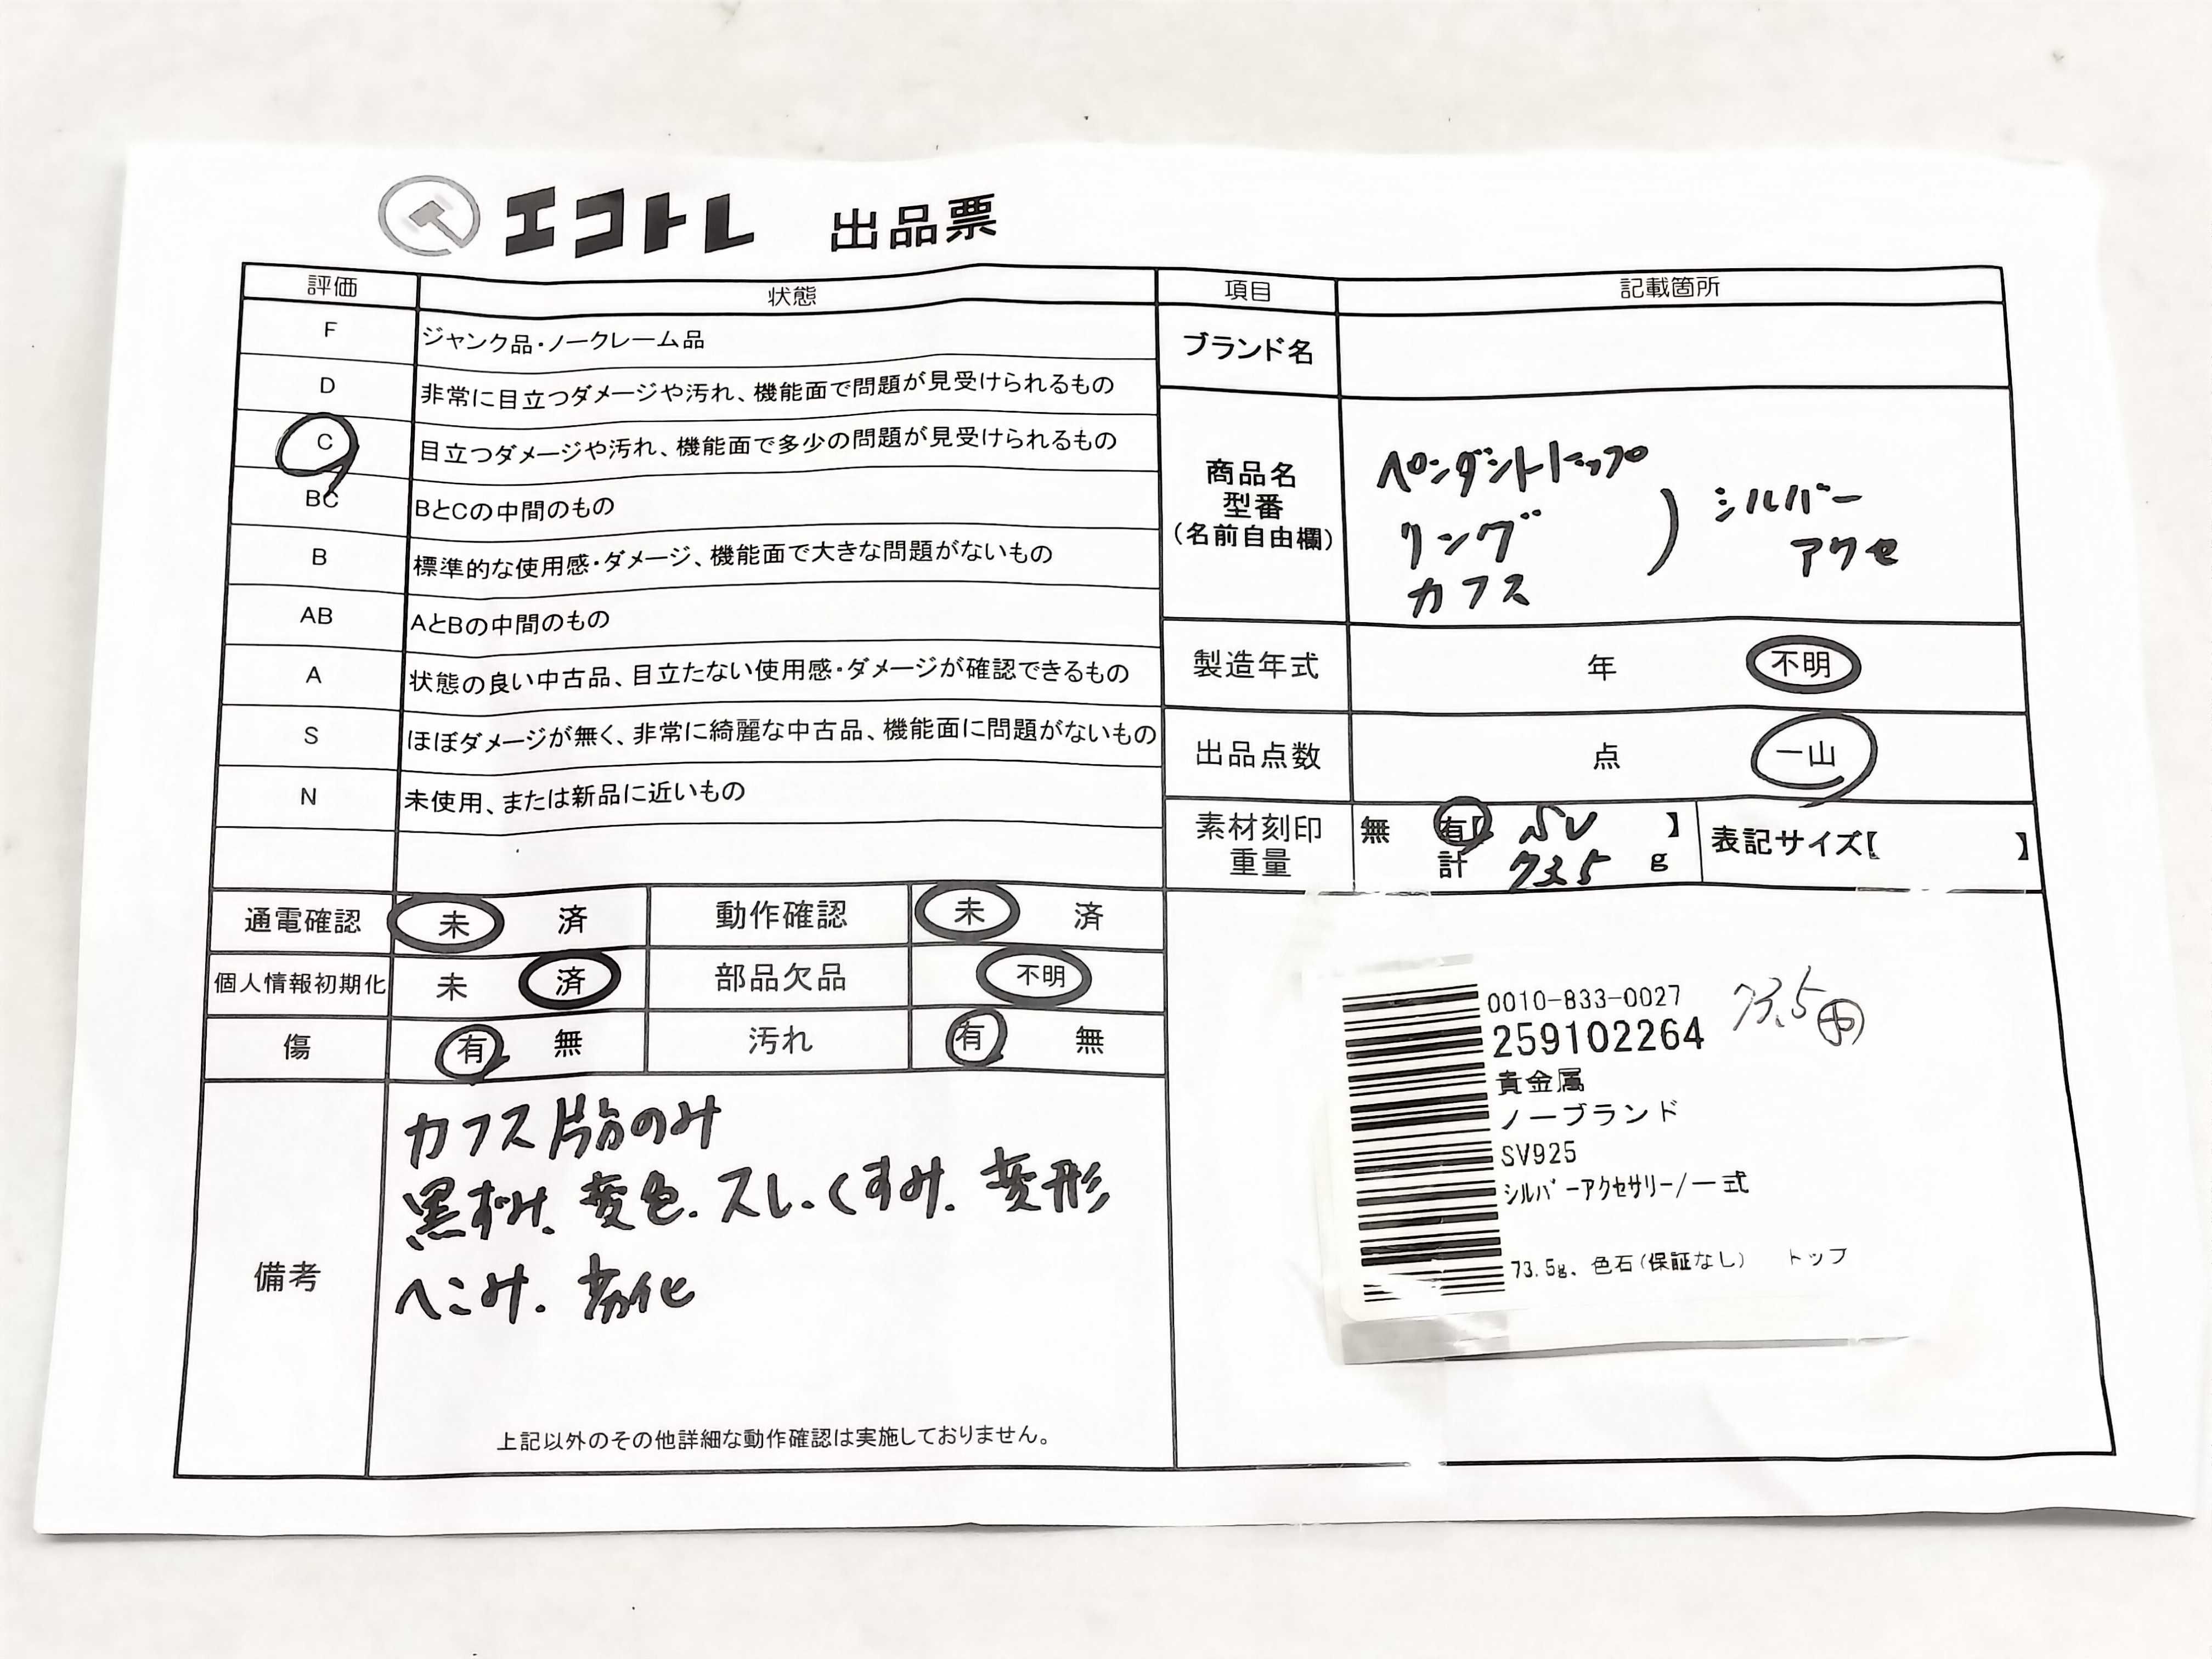 エコトレ 出品票
評価 状態
F ジャンク品・ノークレーム品
D 非常に目立つダメージや汚れ、機能面で問題が見受けられるもの
C 目立つダメージや汚れ、機能面で多少の問題が見受けられるもの
BC BとCの中間のもの
B 標準的な使用感・ダメージ、機能面で大きな問題がないもの
AB AとBの中間のもの
A 状態の良い中古品、目立たない使用感・ダメージが確認できるもの
S ほぼダメージが無く、非常に綺麗な中古品、機能面に問題がないもの
N 未使用、または新品に近いもの
通電確認 未 済 動作確認 未 済
個人情報初期化 未 済 部品欠品 不明
傷 有 無 汚れ 有 無
備考
カフス片方のみ
黒ずみ、変色、スレ、くすみ、変形
へこみ、劣化
上記以外のその他詳細な動作確認は実施しておりません。
項目 記載箇所
ブランド名
商品名
型番
(名前自由欄)
ペンダントトップ
リング
カフス
) シルバー
アクセ
製造年式 年 不明
出品点数 点 一山
素材刻印 無 有【 SV 】 表記サイズ【 】
重量 計 73.5 g
0010-833-0027
259102264 73.5
貴金属
ノーブランド
SV925
シルバーアクセサリー/一式
73.5g、色石(保証なし) トップ